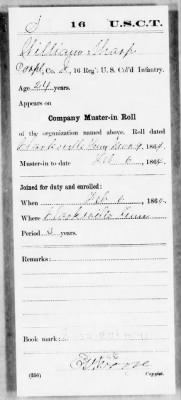 S 16 U.S.C.T.
William Sharp
Corpl, Co. , 16 Reg't U. S. Col'd Infantry.
Age 24 years.
Appears on
Company Muster-in Roll
of the organization named above. Roll dated
Clarksville Tenn , 1864.
Muster-in to date Feb 6, 1864.
Joined for duty and enrolled:
When Feb 6, 186 .
Where Clarksville Tenn
Period 3 years.
Remarks:
Book mark:
(356) Copyist.